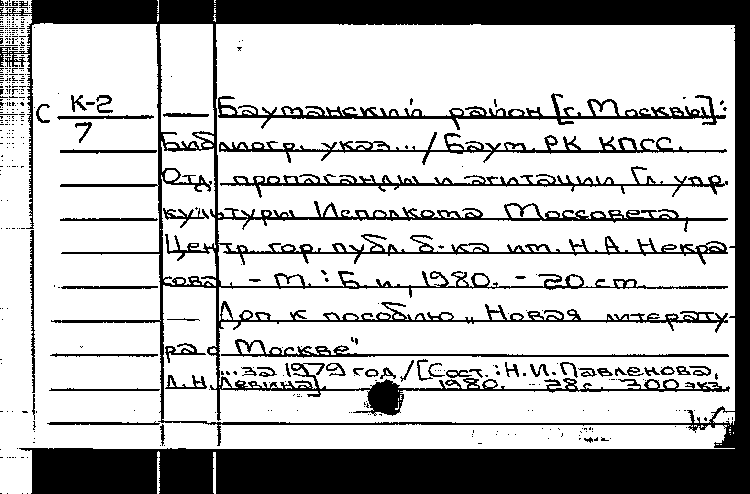 С К-2 — Бауманский район [г. Москвы]:
7 Библиогр. указ... / Баум. РК КПСС.
Отд. пропаганды и агитации, Гл. упр.
культуры Исполкома Моссовета,
Центр. гор. публ. б-ка им. Н.А. Некра-
сова. - М. : Б. и., 1980. - 20 см.
— Доп. к пособию „Новая литерату-
ра о Москве".
...за 1979 год. / [Сост. : Н.И. Павленова,
Л.Н. Левина]. 1980. - 28 с. 300 экз.